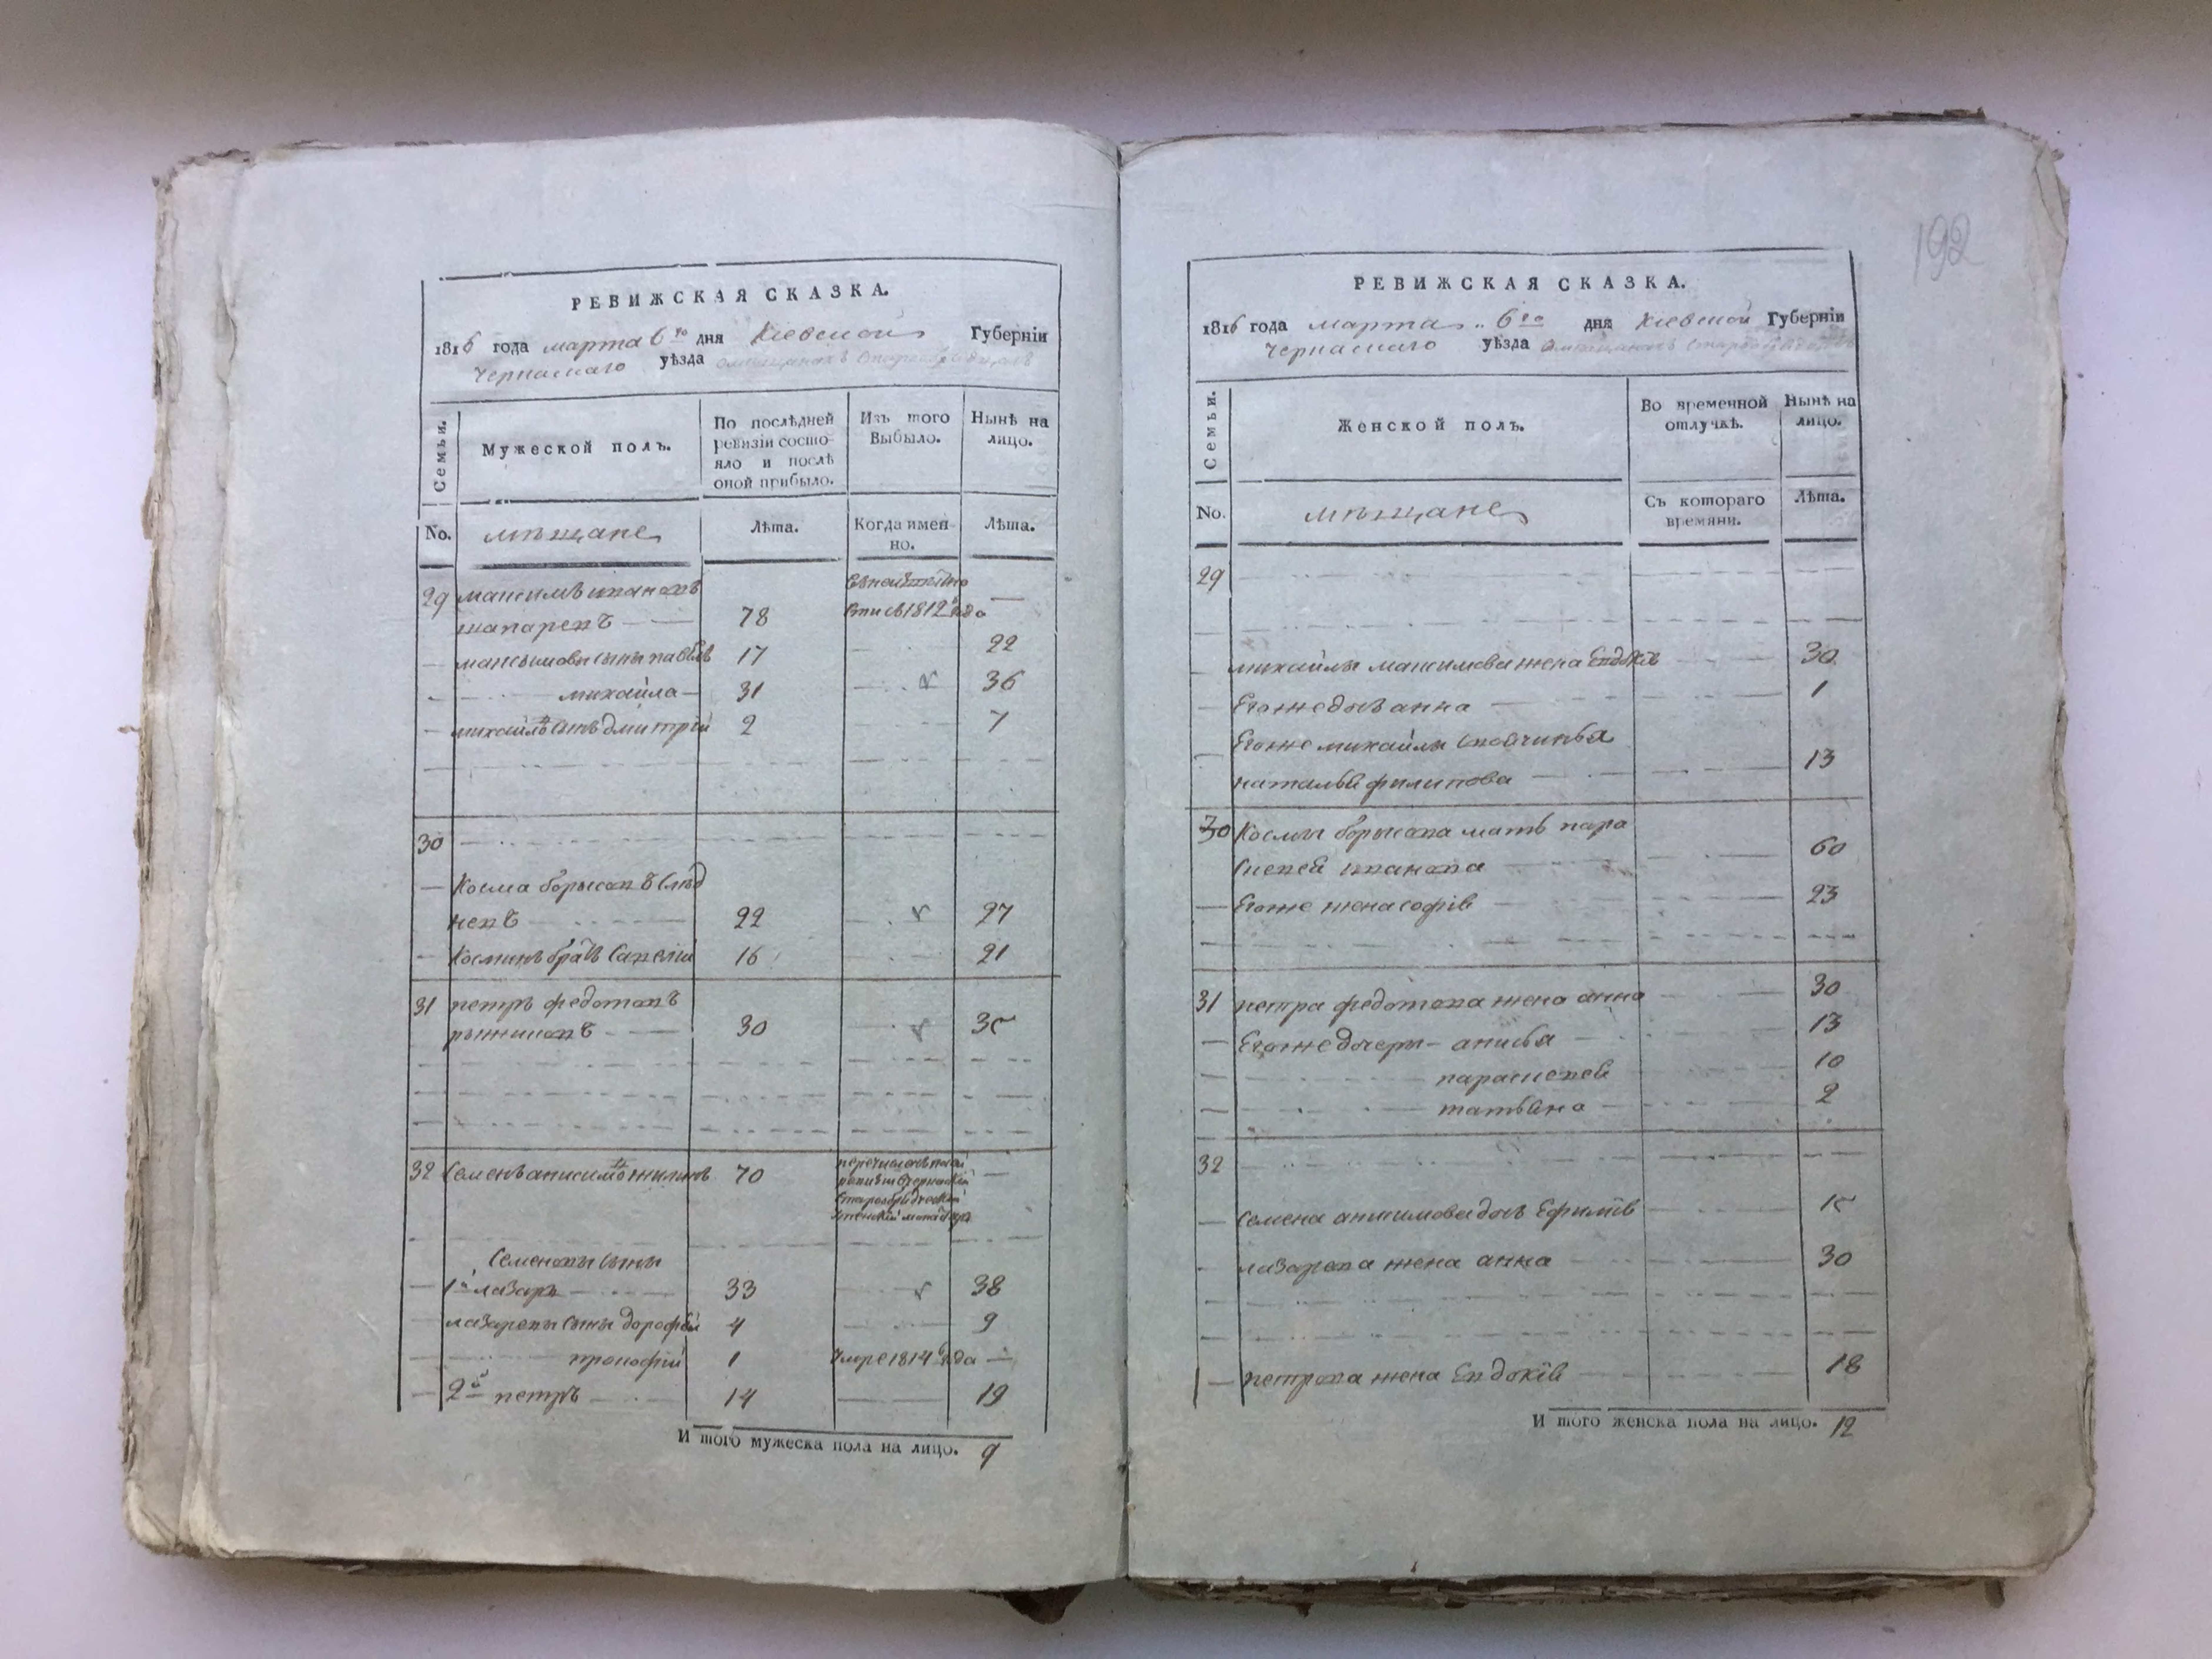 РЕВИЖСКАЯ СКАЗКА.
1816 года марта 6го дня Киевской Губернїи
Черкаскаго уѣзда
Семьи.
Мужеской полъ.
По послѣдней ревизїи состо-
яло и послѣ
оной прибыло.
Изъ того
Выбыло.
Нынѣ на
лицо.
No. мѣщане Лѣта. Когда имен-
но. Лѣта.
29 максимъ ивановъ
78 1812 года —
максимовы сыны павелъ 17 22
михайла 31 36
михайлы сынъ дмитрій 2 7
30
Косма борисовъ След
невъ 22 27
Косминъ братъ Савелій 16 21
31 петръ федотовъ
30 35
32 Семенъ анисимовъ 70 —
Семеновы сыны
1й лазарь 33 38
лазаревы сыны дорофей 4 9
прокофій 1 умре 1814 года —
2й петръ 14 19
И того мужеска пола на лицо. 9
192
РЕВИЖСКАЯ СКАЗКА.
1816 года марта 6го дня Киевской Губернїи
Черкаскаго уѣзда
Семьи.
Женской полъ.
Во временной
отлучкѣ.
Нынѣ на
лицо.
No. мѣщане Съ котораго
времяни. Лѣта.
29
михайлы максимова жена Евдокія 30
Егоже дочь анна 1
Егоже михайлы
наталья филипова 13
30 Космы борисова мать пара
скевія иванова 60
Егоже жена софія 23
31 петра федотова жена анна 30
Егоже дочери анисья 13
параскевія 10
татьяна 2
32
Семена анисимова дочь Ефимія 15
лазарева жена анна 30
петрова жена Евдокія 18
И того женска пола на лицо. 12